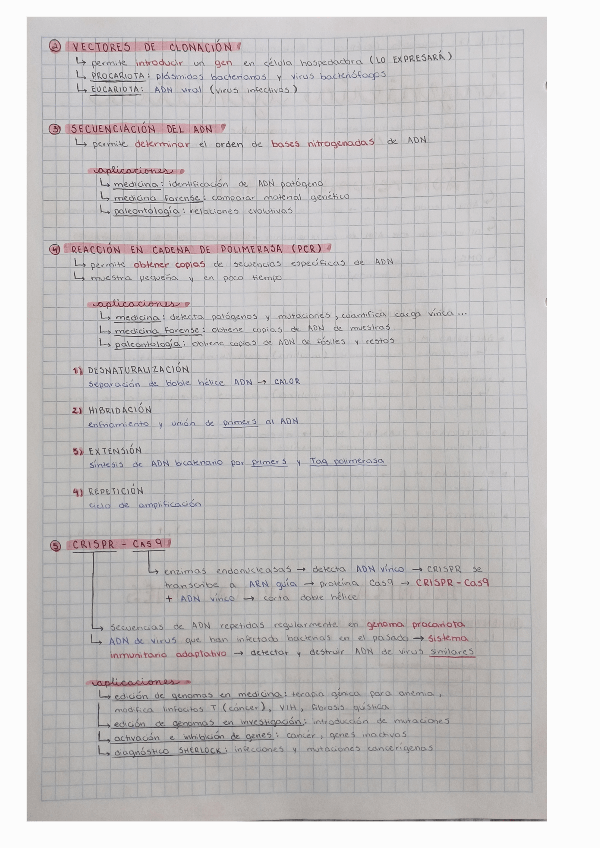 ② VECTORES DE CLONACIÓN
↳ permite introducir un gen en célula hospedadora (LO EXPRESARÁ)
↳ PROCARIOTA: plásmidos bacterianos y virus bacteriófagos
↳ EUCARIOTA: ADN viral (virus infectivos)
③ SECUENCIACIÓN DEL ADN
↳ permite determinar el orden de bases nitrogenadas de ADN
aplicaciones
↳ medicina: identificación de ADN patógeno
↳ medicina forense: comparar material genético
↳ paleontología: relaciones evolutivas
④ REACCIÓN EN CADENA DE POLIMERASA (PCR)
↳ permite obtener copias de secuencias específicas de ADN
↳ muestra pequeña y en poco tiempo
aplicaciones
↳ medicina: detecta patógenos y mutaciones, cuantifica carga vírica...
↳ medicina forense: obtiene copias de ADN de muestras
↳ paleontología: obtiene copias de ADN de fósiles y restos
1) DESNATURALIZACIÓN
separación de doble hélice ADN → CALOR
2) HIBRIDACIÓN
enfriamiento y unión de primers al ADN
3) EXTENSIÓN
síntesis de ADN bicatenario por primers y Taq polimerasa
4) REPETICIÓN
ciclo de amplificación
⑤ CRISPR - Cas9
↳ enzimas endonucleasas → detecta ADN vírico → CRISPR se
transcribe a ARN guía → proteína Cas9 → CRISPR-Cas9
+ ADN vírico → corta doble hélice
↳ secuencias de ADN repetidas regularmente en genoma procariota
↳ ADN de virus que han infectado bacterias en el pasado → sistema
inmunitario adaptativo → detectar y destruir ADN de virus similares
aplicaciones
↳ edición de genomas en medicina: terapia génica para anemia,
modifica linfocitos T (cáncer), VIH, fibrosis quística
↳ edición de genomas en investigación: introducción de mutaciones
↳ activación e inhibición de genes: cáncer, genes inactivos
↳ diagnóstico SHERLOCK: infecciones y mutaciones cancerígenas